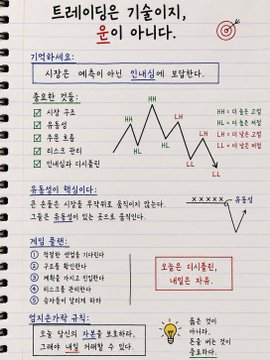 트레이딩은 기술이지,
운이 아니다.
기억하세요:
시장은 예측이 아닌 인내심에 보답한다.
중요한 것들:
시장 구조
유동성
주문 흐름
리스크 관리
인내심과 디시플린
HH
HH
HL
HL
LH
LH
LL
LL
HH = 더 높은 고점
HL = 더 높은 저점
LH = 더 낮은 고점
LL = 더 낮은 저점
유동성이 핵심이다:
큰 손들은 시장을 무작위로 움직이지 않는다.
그들은 유동성이 있는 곳으로 움직인다.
xxxxx
유동성
게임 플랜:
1 적절한 셋업을 기다린다
2 구조를 확인한다
3 계획을 가지고 진입한다
4 리스크를 관리한다
5 승자들이 달리게 하라
오늘은 디시플린,
내일은 자유.
엄지손가락 규칙:
오늘 당신의 자본을 보호하라,
그래야 내일 거래할 수 있다.
옳은 것이
아니라,
돈을 버는 것이
중요하다.